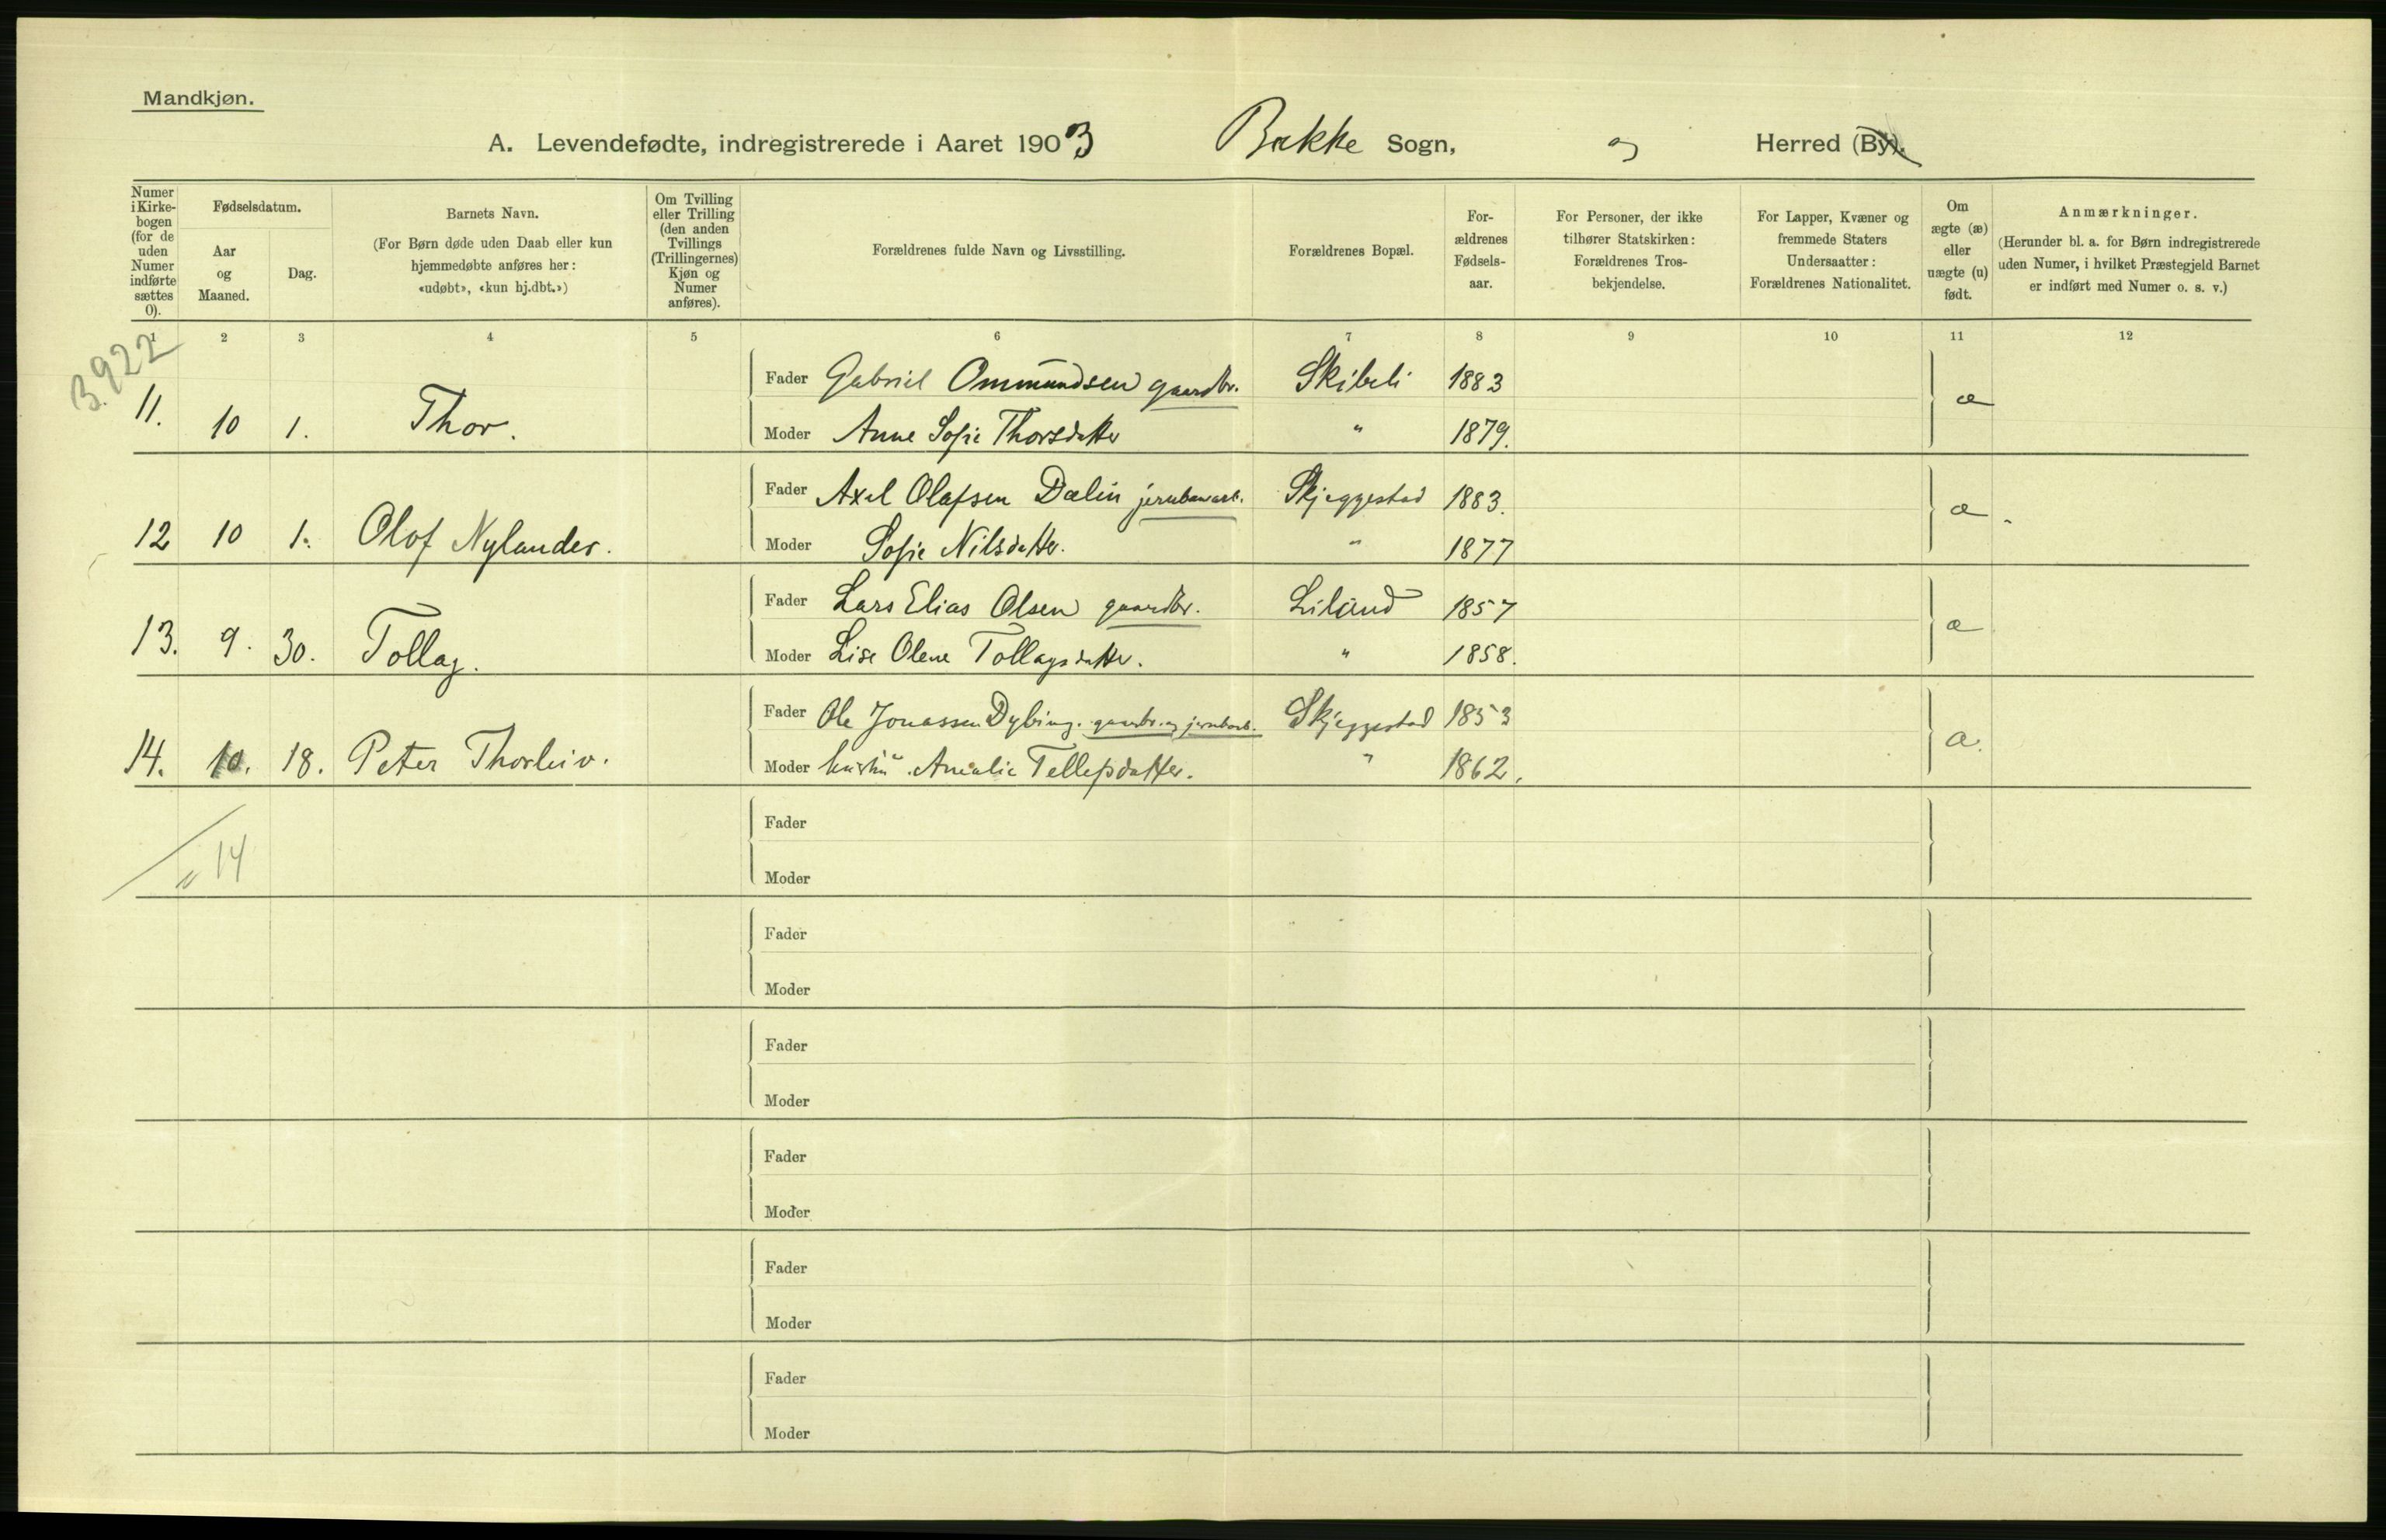 Mandkjøn.
A. Levendefødte, indregistrerede i Aaret 1903 Bakke Sogn, og Herred (By).
Numer i Kirke-bogen (for de uden Numer indførte sættes 0).
Fødselsdatum.
Aar og Maaned.
Dag.
Barnets Navn.
(For Børn døde uden Daab eller kun hjemmedøbte anføres her: «udøbt», «kun hj.dbt.»)
Om Tvilling eller Trilling (den anden Tvillings (Trillingernes) Kjøn og Numer anføres).
Forældrenes fulde Navn og Livsstilling.
Forældrenes Bopæl.
For-ældrenes Fødsels-aar.
For Personer, der ikke tilhører Statskirken: Forældrenes Tros-bekjendelse.
For Lapper, Kvæner og fremmede Staters Undersaatter: Forældrenes Nationalitet.
Om ægte (æ) eller uægte (u) født.
Anmærkninger.
(Herunder bl. a. for Børn indregistrerede uden Numer, i hvilket Præstegjeld Barnet er indført med Numer o. s. v.)
1 2 3 4 5 6 7 8 9 10 11 12
3.922
Fader Gabriel Ommundsen gaardbr. Skibeli 1883
11. 10 1. Thor. æ
Moder Anne Sofie Thorsdatter " 1879.
Fader Axel Olafsen Dalin jernbanearb. Skjeggestad 1883.
12 10 1. Olof Nylander. æ.
Moder Sofie Nilsdatter. " 1877
Fader Lars Elias Olsen gaardbr. Liland 1857
13. 9. 30. Tollag. æ
Moder Lise Olene Tollagsdatter. " 1858.
Fader Ole Jonassen Dybing. gaardbr. og jernbarb. Skjeggestad 1853
14. 10. 18. Peter Thorleiv. æ.
Moder Amalie Tellefsdatter. " 1862.
Fader
" 14
Moder
Fader
Moder
Fader
Moder
Fader
Moder
Fader
Moder
Fader
Moder